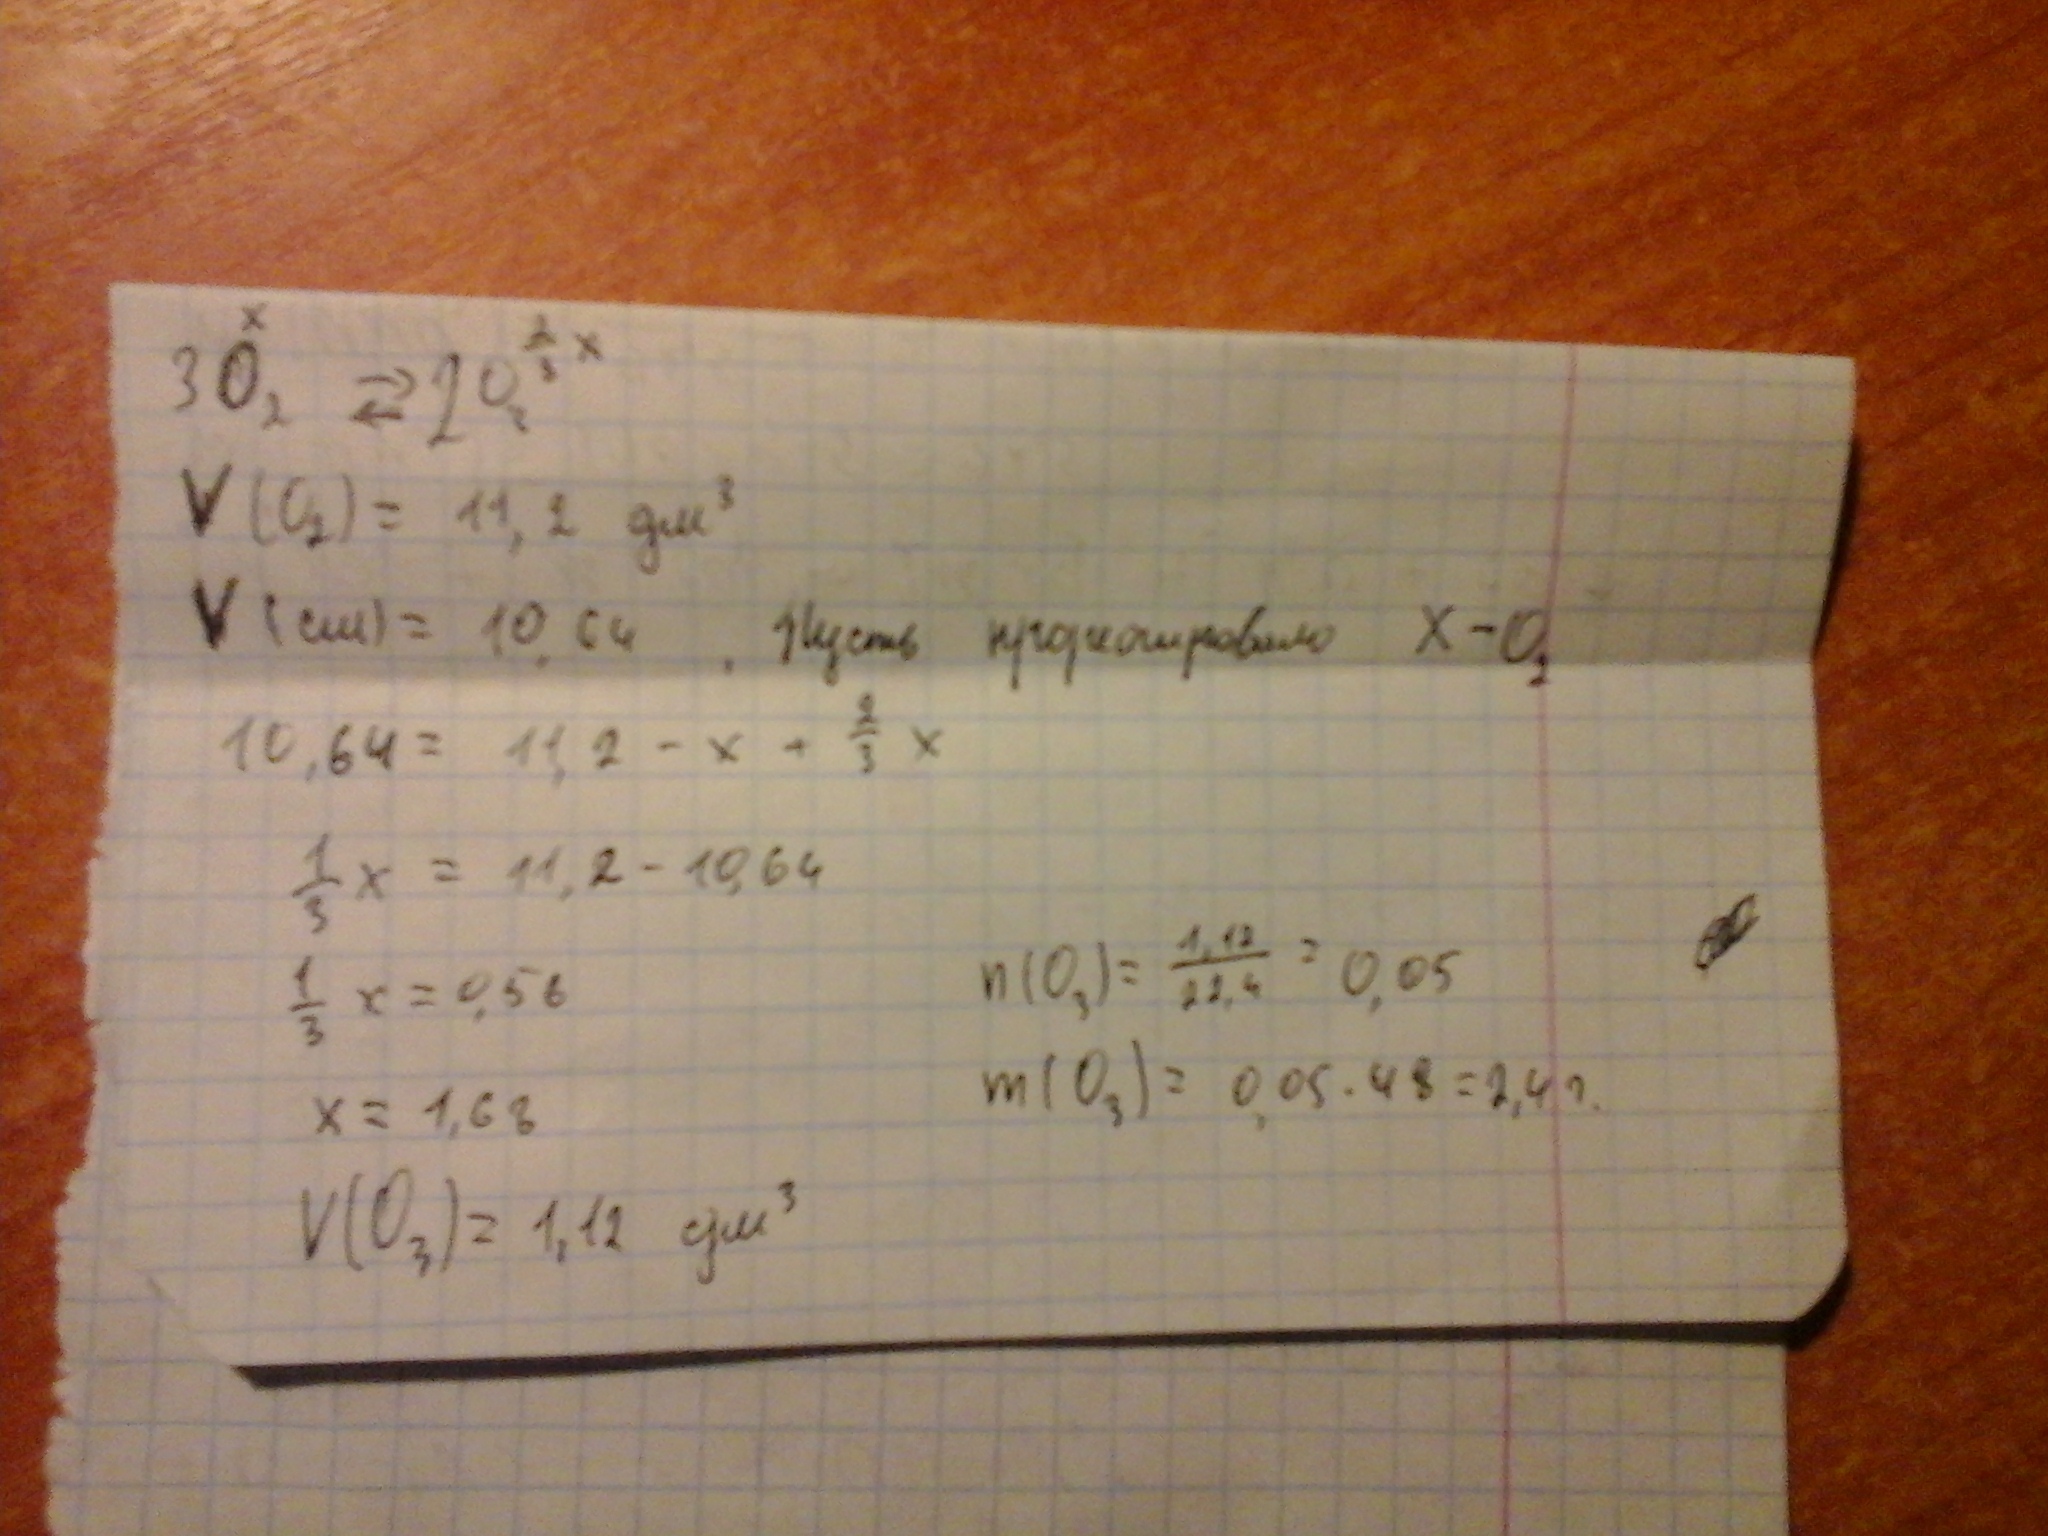 3O₂ ⇄ 2O₃ x 2/3 x
V(O₂) = 11,2 дм³
V(см) = 10,64. Пусть прореагировало X - O₂
10,64 = 11,2 - x + 2/3 x
1/3 x = 11,2 - 10,64
1/3 x = 0,56
x = 1,68
V(O₃) = 1,12 дм³
n(O₃) = 1,12/22,4 = 0,05
m(O₃) = 0,05 · 48 = 2,4 г.